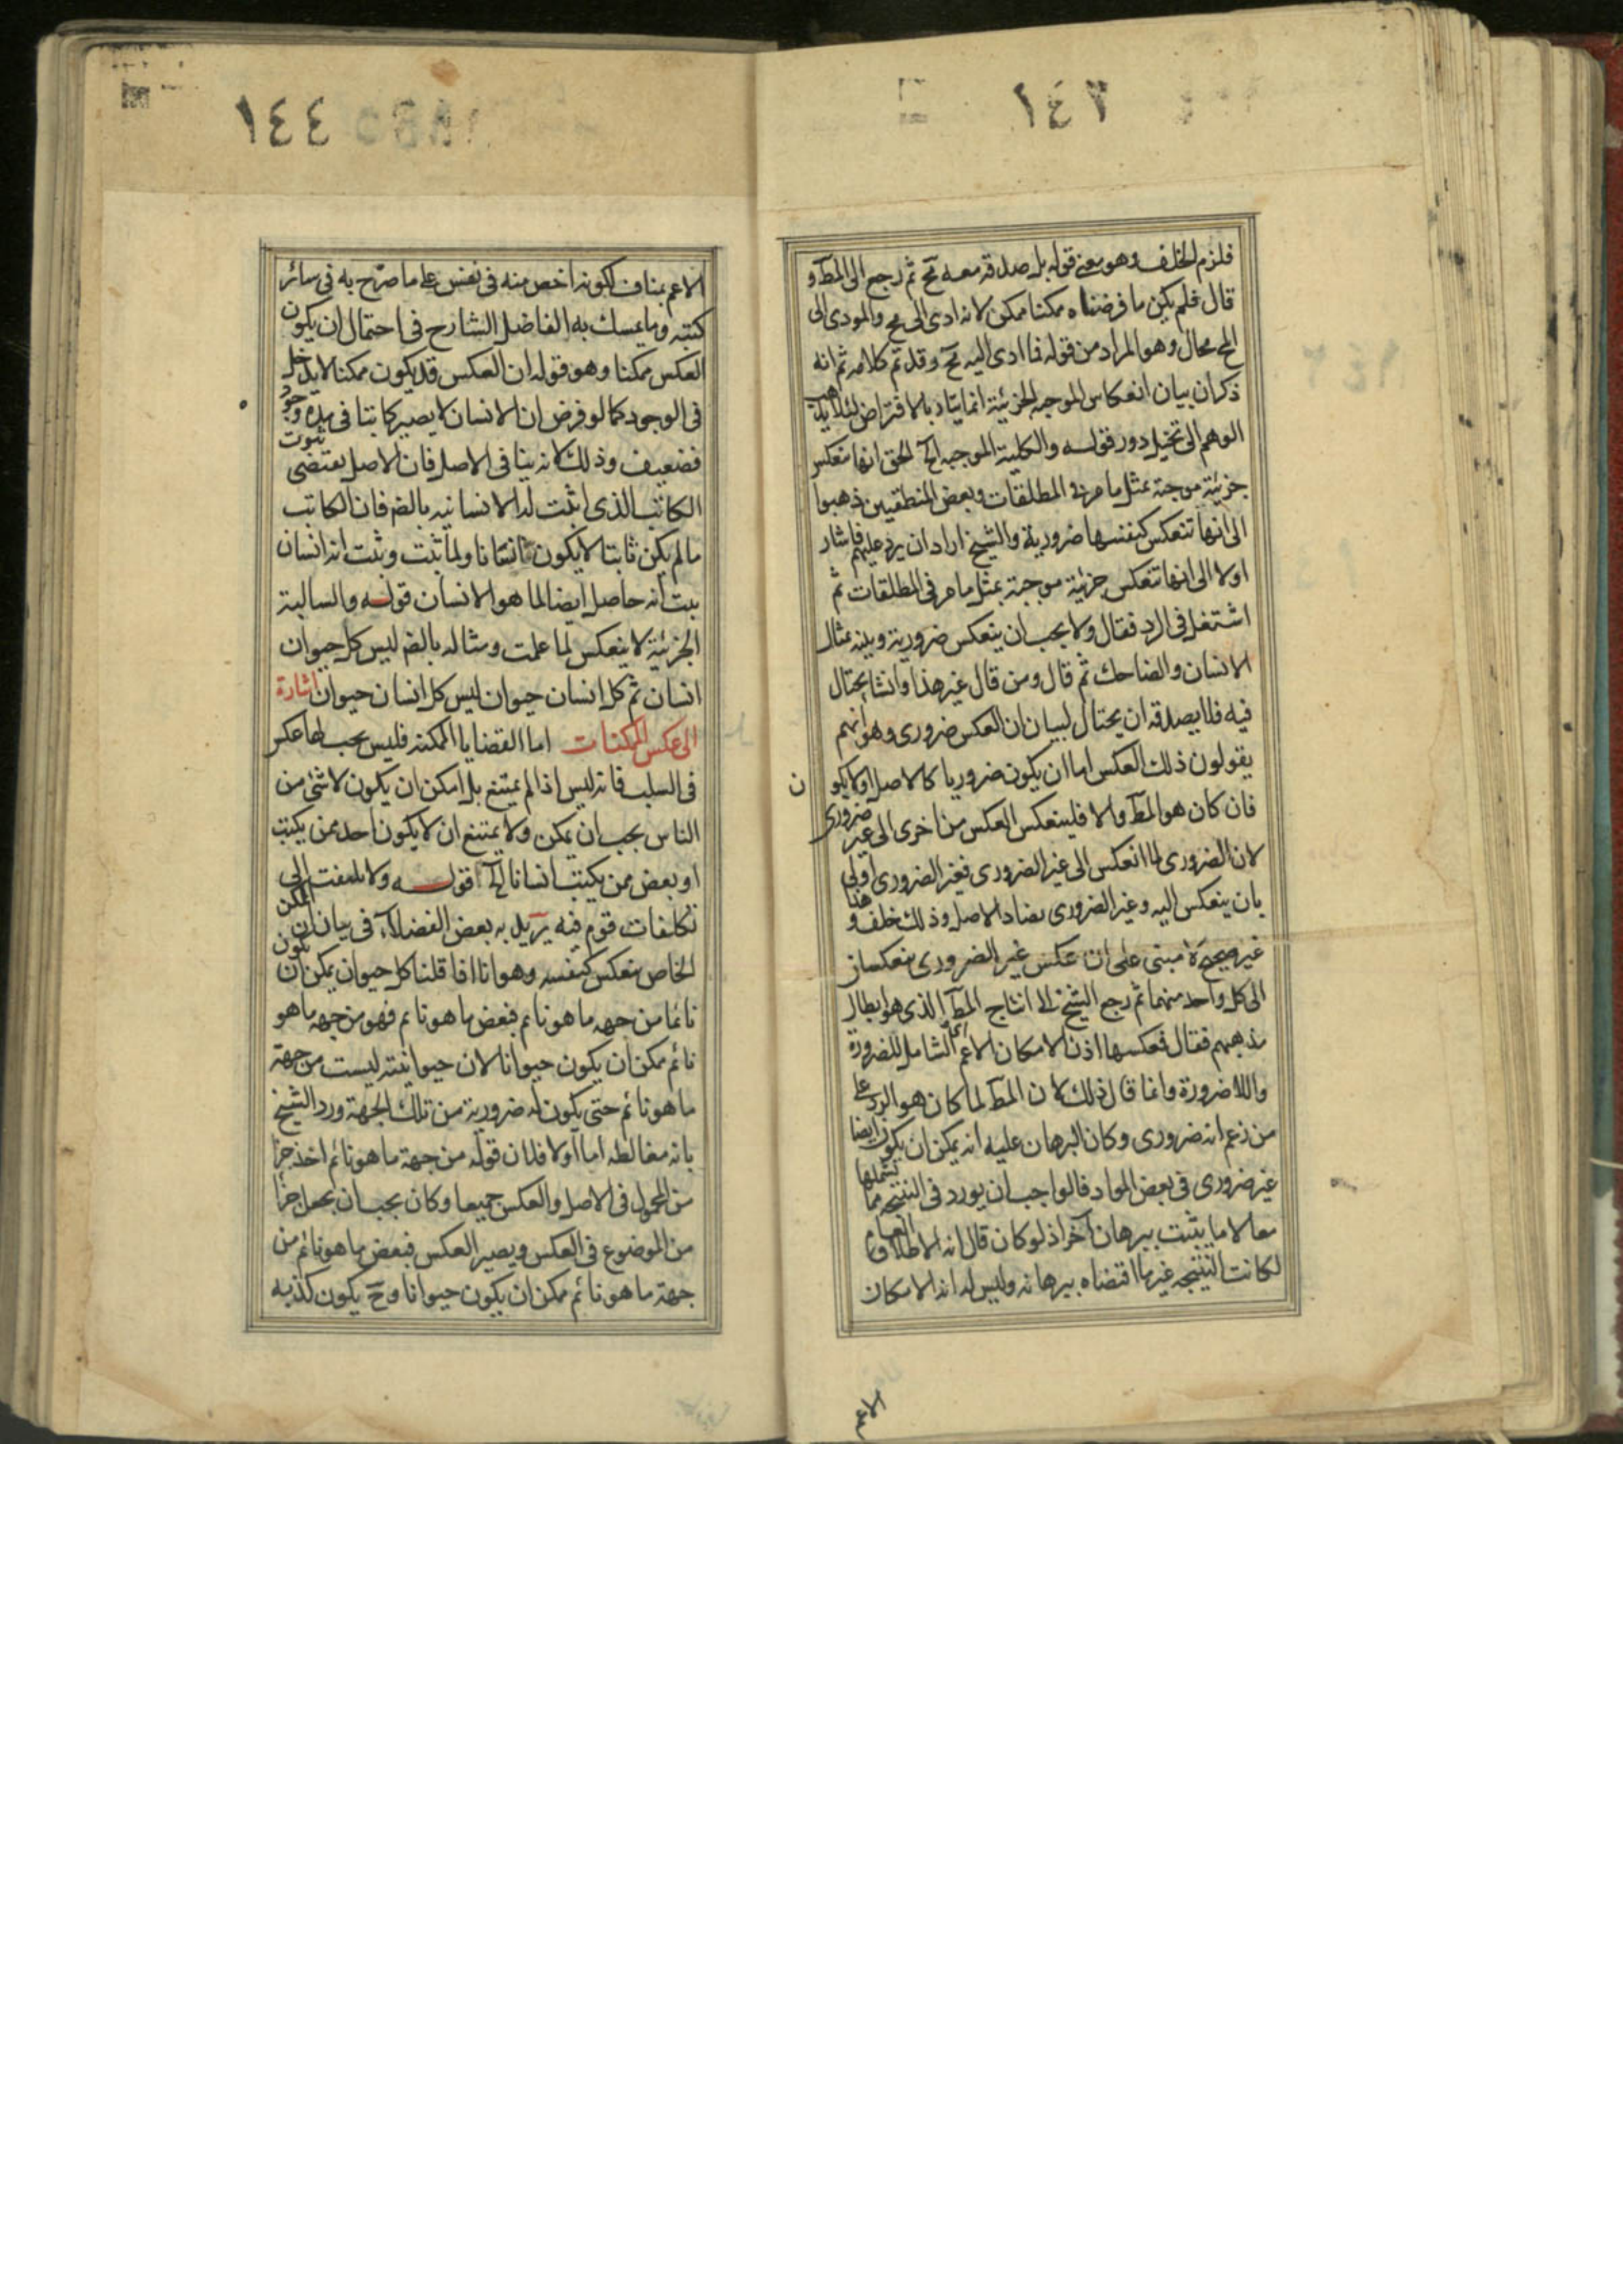 ١٤٣
فلزم الخلف وهو معنى قوله بل صدقه معه مح ثم رجع الى المط و
قال فلم يكن ما فرضناه ممكنا ممكن لانه ادى الى مح والمودى الى
المح محال وهو المراد من قوله فما ادى اليه مح وقد تم كلامه ثم انه
ذكر ان بيان انعكاس الموجبه الجزئية انما يتأد بالافتراض لئلا يذهب
الوهم الى تخيل دور قولــه والكلية الموجبه الخ الحق انها تنعكس
جزئية موجبة بمثل ما مر فى المطلقات وبعض المنطقيين ذهبوا
الى انها تنعكس كنفسها ضرورية والشيخ اراد ان يرد عليهم فاشار
اولا الى انها تنعكس جزئية موجبة بمثل ما مر فى المطلقات ثم
اشتغل فى الرد فقال ولا يجب ان ينعكس ضرورية وبينه بمثال
الانسان والضاحك ثم قال ومن قال غير هذا وانشا يحتال
فيه فلا يصدقه ان يحتال لبيان ان العكس ضرورى وهو انهم
يقولون ذلك العكس اما ان يكون ضروريا كالاصل او لا يكون
فان كان هو المط والا فلينعكس العكس من اخرى الى غير ضرورى
لان الضرورى لما انعكس الى غير الضرورى فغير الضرورى اولى
بان ينعكس اليه وغير الضرورى يضاد الاصل وذلك خلف وهذا
غير صحيح لانه مبنى على ان عكس غير الضرورى
الى كل واحد منهما ثم رجع الشيخ الى انتاج المط الذى هو ابطال
مذهبهم فقال فعكسها اذن الامكان الاعم الشامل للضرورة
واللاضرورة وانما قال ذلك لان المط لما كان هو الرد على
من زعم انه ضرورى وكان البرهان عليه انه يمكن ان يكون ايضا
غير ضرورى فى بعض المواد فالواجب ان يورد فى النتيجه ما يشملها
معا لا ما يثبت ببرهان آخر اذ لو كان قال انه الاطلاق العام
لكانت النتيجه غير ما اقتضاه برهانه وليس له انه الامكان
الاعم
١٤٤
الاعم بمناف لكونه اخص منه فى نفس على ما صرّح به فى سائر
كتبه وما يمسك به الفاضل الشارح فى احتمال ان يكون
العكس ممكنا وهو قوله ان العكس قد يكون ممكنا لا يدخل
فى الوجود كما لو فرض ان الانسان لا يصير كاتبا فى مدة وجود
فضعيف وذلك لانه ينافى الاصل فان الاصل يقتضى ثبوت
الكاتب الذى اثبت له الانسانيه بالضر فان الكاتب
ما لم يكن ثابتا لا يكون انسانا ولما ثبت وثبت انه انسان
يبت انه حاصل ايضا لما هو الانسان قولــه والسالبة
الجزئية لا ينعكس لما علمت ومثاله بالضر ليس كل حيوان
انسان ثم كل انسان حيوان ليس كل انسان حيوان اشارة
الى عكس الممكنات اما القضايا الممكنه فليس يجب لها عكس
فى السلب فانه ليس اذا لم يمتنع بل امكن ان يكون لا شئ من
الناس يجب ان يمكن ولا يمتنع ان لا يكون احد ممن يكتب
او بعض ممن يكتب انسانا الخ اقولــه ولا يلتفت الى
تكلفات قوم فيه يريد به بعض الفضلاء فى بيان ان الممكن
الخاص ينعكس كنفسه وهو انا اذا قلنا كل حيوان يمكن ان يكون
نائما من جهه ما هو نائم فبعض ما هو نائم فهو من جهه ما هو
نائم ممكن ان يكون حيوانا لان حيوانيته ليست من جهة
ما هو نائم حتى يكون له ضرورية من تلك الجهة ورد الشيخ
بانه مغالطه اما اولا فلان قوله من جهة ما هو نائم اخذ جزأ
من المحمول فى الاصل والعكس جميعا وكان يجب ان يجعل جزأ
من الموضوع فى العكس ويصير العكس فبعض ما هو نائم من
جهة ما هو نائم ممكن ان يكون حيوانا وح يكون كذبه